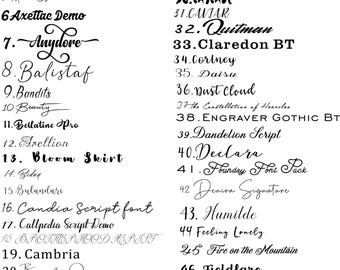 6 Axettac Demo
7. Anydore
8. Balistaf
9. Bandits
10 Beauty
11. Bellatine Pro
12. Avellion
13. Bloom Skirt
14. Bday
15. Bulandari
16. Candia Script font
17. Callpedia Script Demo
18. BROTHERHOOD SCRIPT
19. Cambria
31. CAVIAR
32. Quitman
33. Claredon BT
34. Cortney
35. Daisy
36. Dust Cloud
37 the Constellation of Heracles
38. ENGRAVER GOTHIC BT
39. Dandelion Script
40. Declara
41. Foundry Font Pack
42 Denira Signature
43. Humilde
44 Feeling Lovely
45 Fire on the Mountain
46. Fieldlare